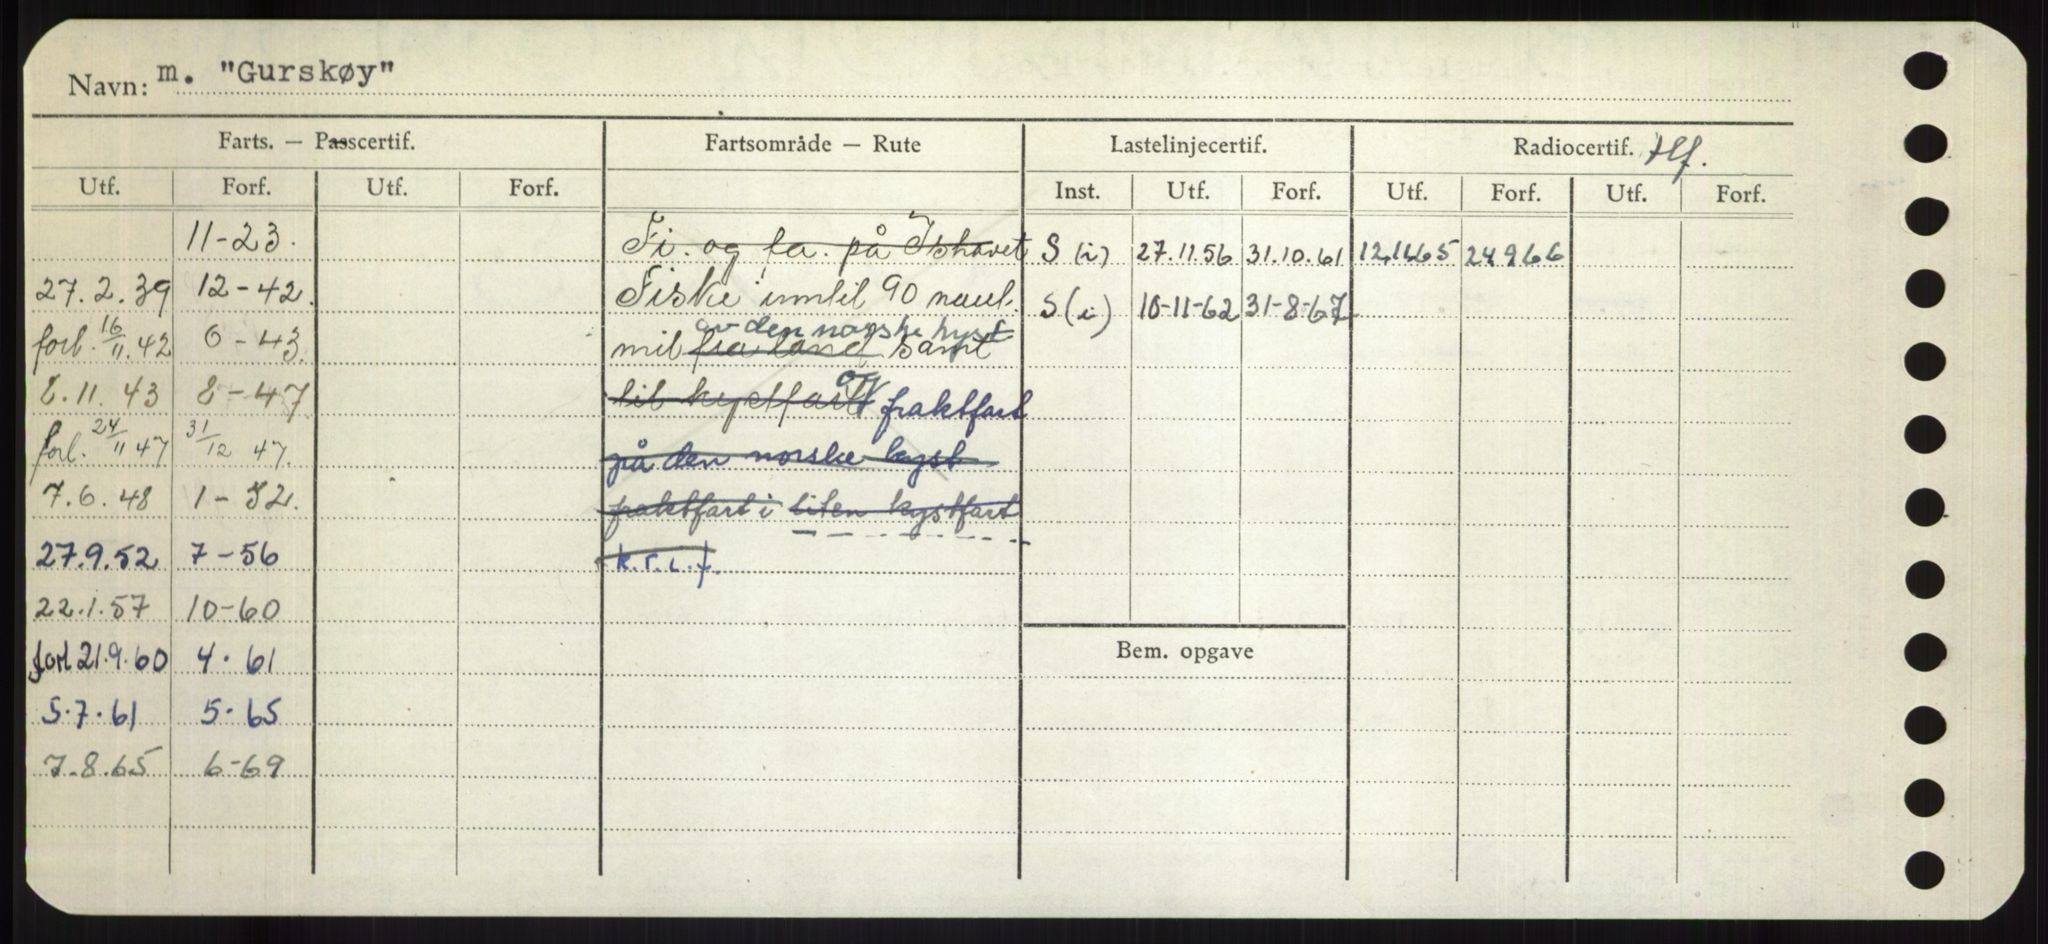 Navn: m. "Gurskøy"
Farts. — Passcertif. Fartsområde — Rute Lastelinjecertif. Radiocertif. Tlf.
Utf. Forf. Utf. Forf. Inst. Utf. Forf. Utf. Forf. Utf. Forf.
11-23. Fi. og fa. på Ishavet S (i) 27.11.56 31.10.61 12.11.65 24.9.66
27.2.39 12-42. Fiske inntil 90 naut. S (i) 10-11-62 31-8-67
av den norske kyst
forl. 16/11.42 6-43. mil fra land samt
og
8.11.43 8-47 til kystfart fraktfart
forl. 24/11 47 31/12 47. på den norske kyst
7.6.48 1-52. fraktfart i liten kystfart
27.9.52 7-56 k.r.l.f.
22.1.57 10-60
forl 21.9.60 4.61 Bem. opgave
5.7.61 5.65
7.8.65 6-69